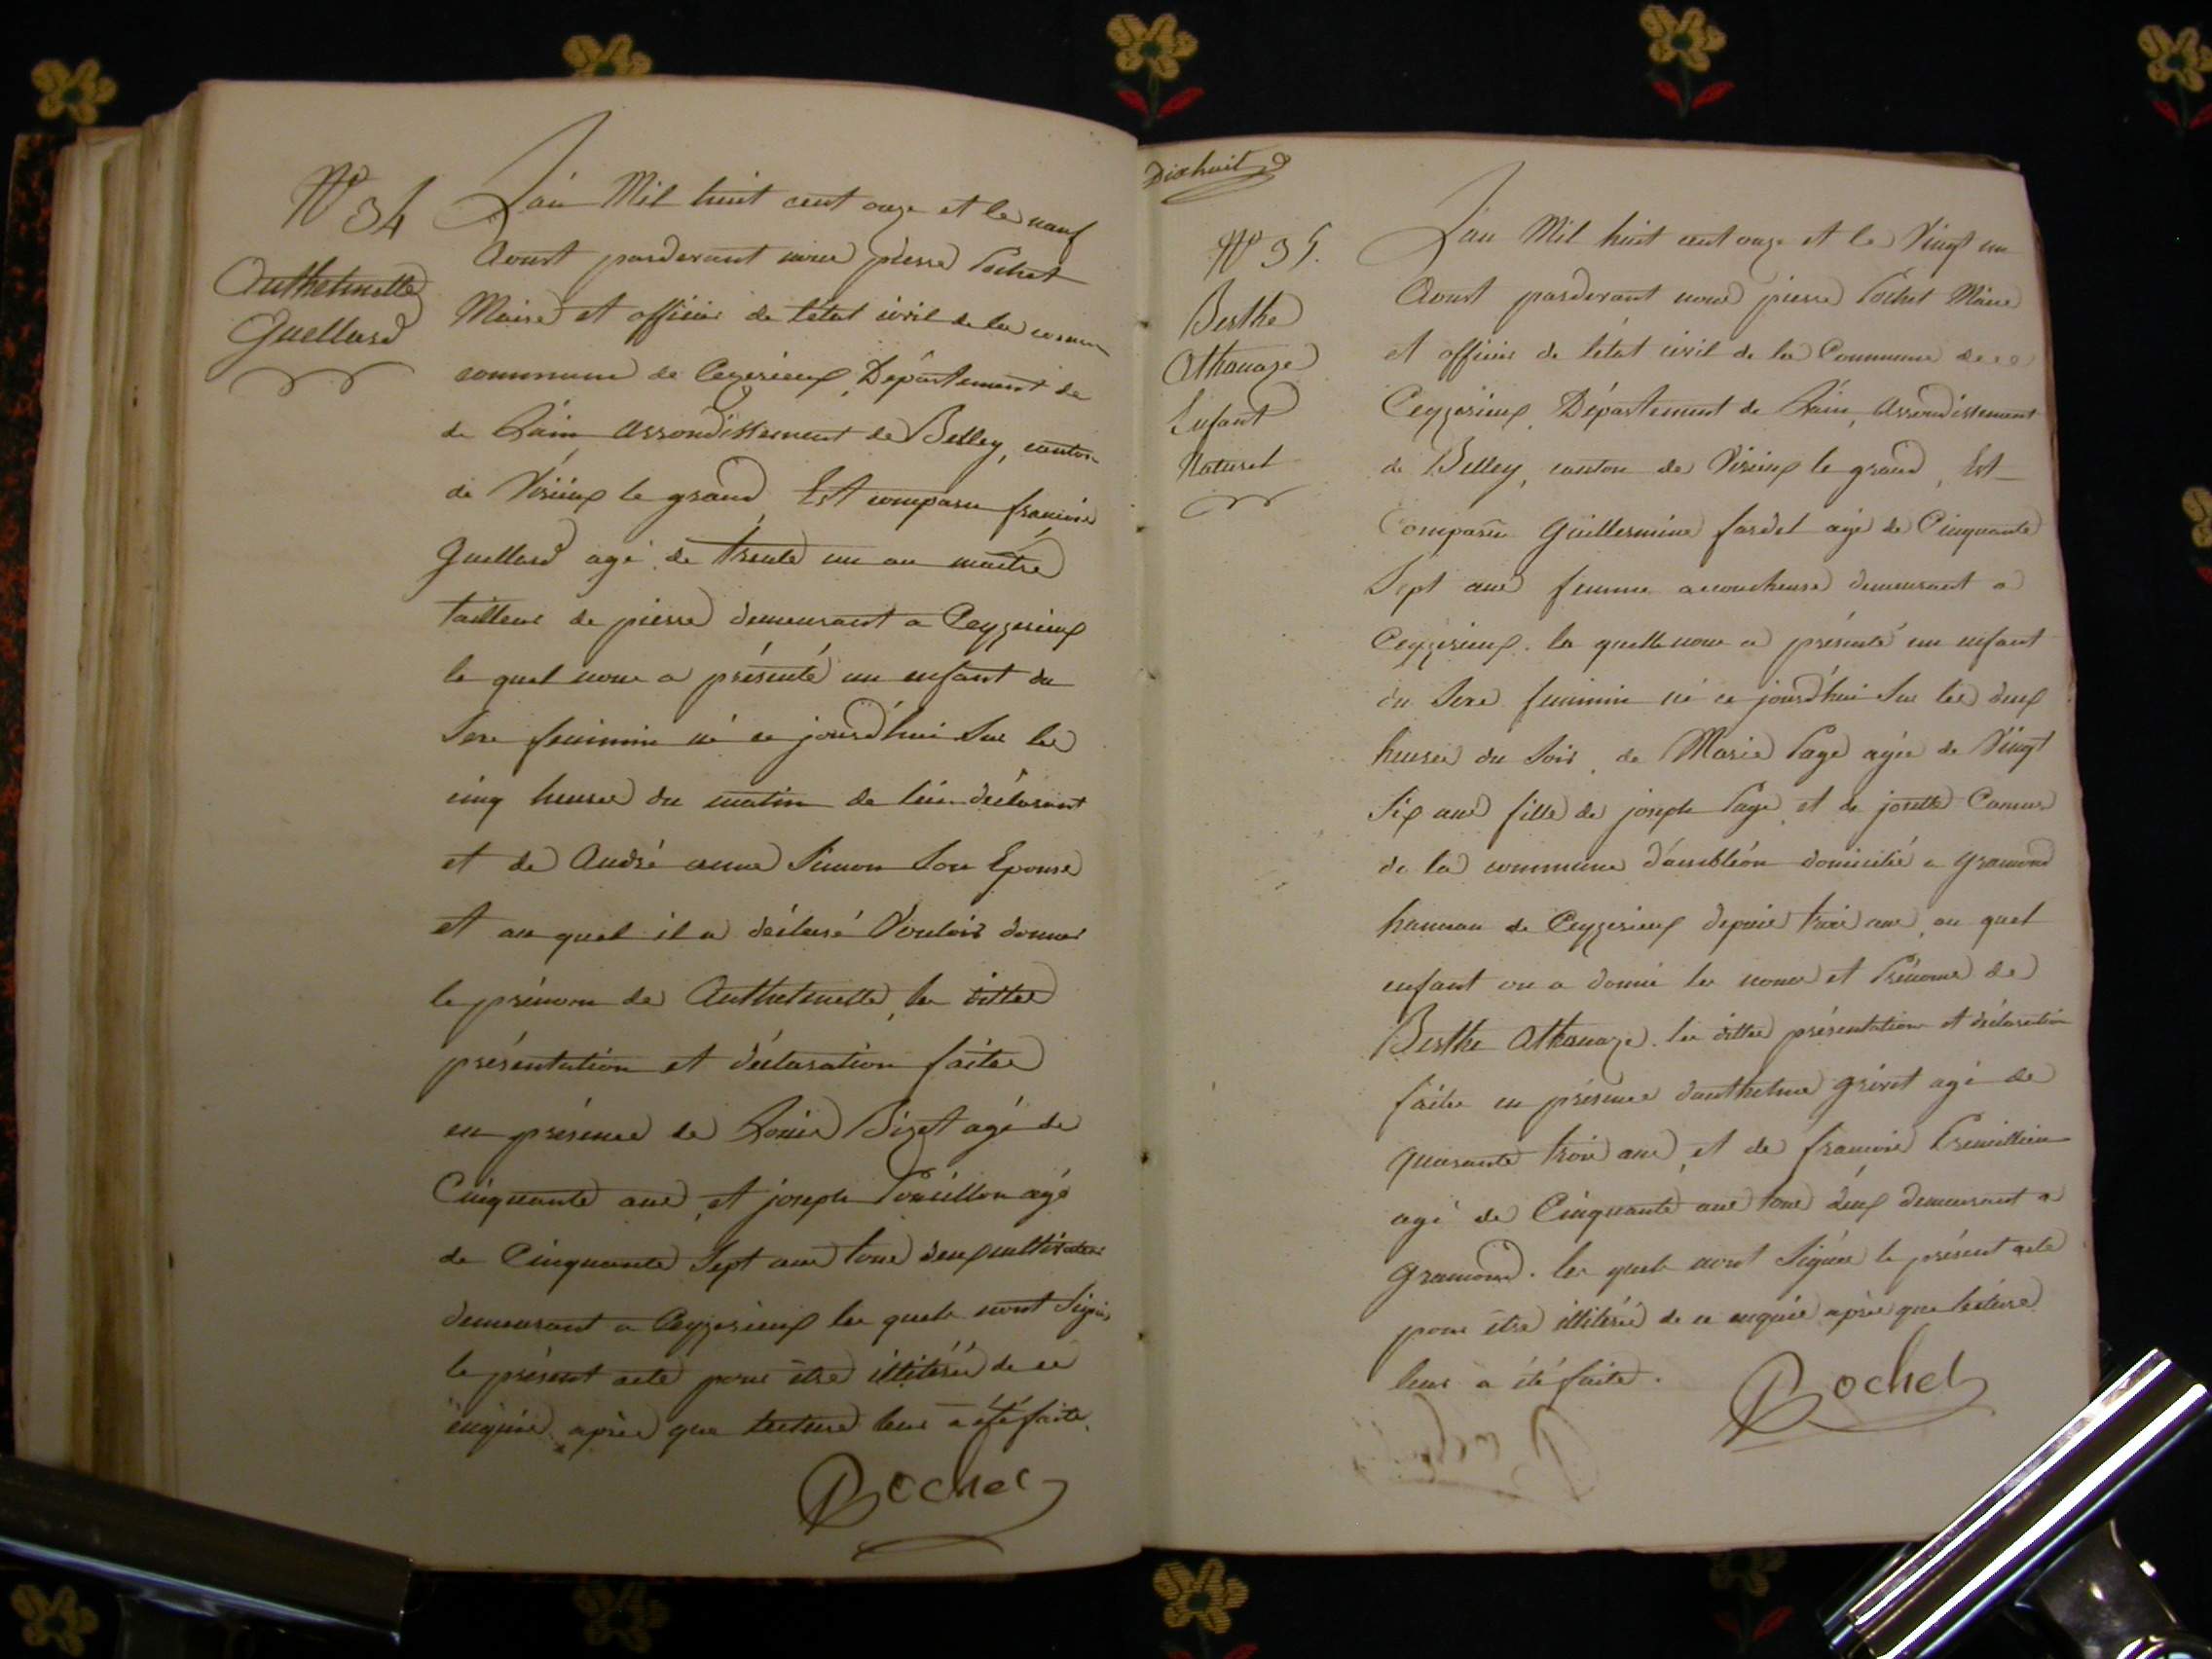 N° 34
Anthelmette
Guelland
L'an Mil huit cent onze et le neuf
Aoust pardevant nous pierre Pochet
Maire et officier de l'état civil de la comm
commune de Ceyzerieux, Département de
de L'ain, arrondissement de Belley, canton
de Virieux le grand, Est comparu françois
Guelland agé de trente un an maître
tailleur de pierre demeurant a Ceyzerieux
le quel nous a présenté un enfant du
Sexe feminin né ce jourd'hui Sur les
cinq heures du matin de lui déclarant
et de André anne Simon Son Epouse
et au quel il a déclaré Vouloir donner
le prénom de Anthelmette, les dittes
présentation et déclaration faites
en présence de Louis Bizet agé de
Cinquante ans, et joseph agé
de Cinquante Sept ans tous deux cultivateurs
demeurant a Ceyzerieux les quels nont Signés
le présent acte pour être illitérés de ce
enquis après que lecture leur a été faite.
Pochet
Dixhuit
N° 35.
Berthe
Athanaze
Enfant
Naturel
L'an Mil huit cent onze et le Vingt un
Aoust pardevant nous pierre Pochet Maire
et officier de l'état civil de la Commune de
Ceyzerieux, Département de L'ain, Arrondissement
de Belley, canton de Virieux le grand, Est
Comparue Guillermine fardel agé de Cinquante
Sept ans femme accoucheuse demeurant a
Ceyzerieux. la quelle nous a présenté un enfant
du Sexe feminin né ce jourd'hui Sur les deux
heures du Soir, de Marie Page agée de Vingt
Six ans fille de joseph Page et de josette
de la commune d'ambléon domicilié a gramond
hameau de Ceyzerieux depuis trois ans, au quel
enfant on a donné les noms et Prénoms de
Berthe Athanaze. les dittes présentation et déclaration
faites en présence d'anthelme grivet agé de
quarante trois ans, et de françois
agé de Cinquante ans tous deux demeurant a
gramond. les quels nont Signés le présent acte
pour être illitérés de ce enquis après que lecture
leur a été faite.
Pochet